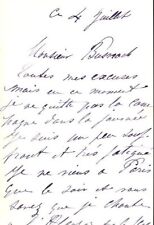 Ce 4 Juillet
Monsieur Busnach
Toutes mes excuses
mais en ce moment
je ne quitte pas la cam
pagne dans la journée
Je suis un peu souf
frant et très fatigué
Je ne viens à Paris
que le soir et vous
savez que je chante